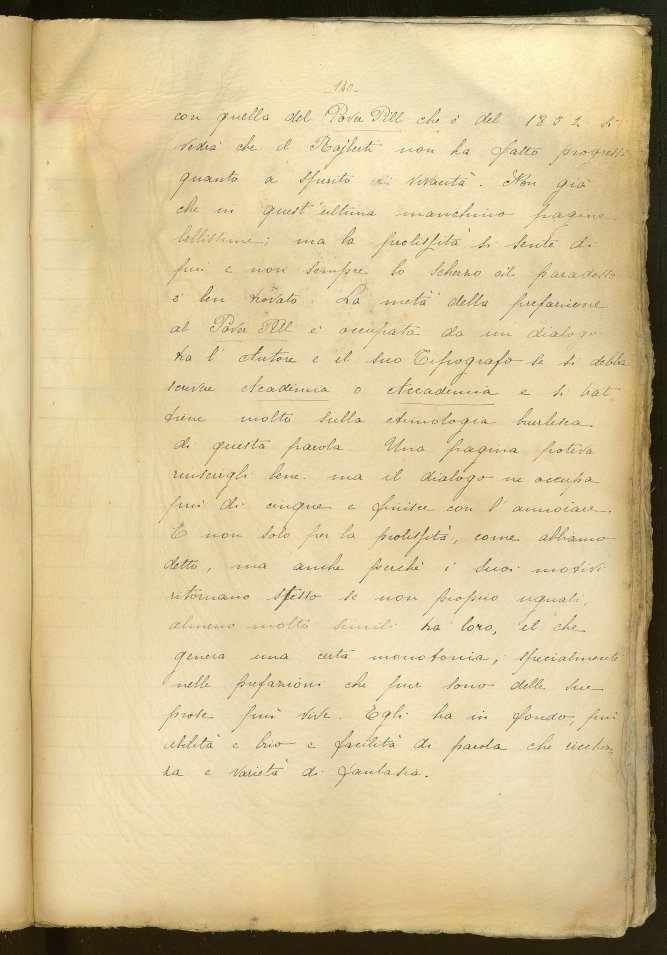 -140-
con quella del Pover Pill che è del 1852 si
vedrà che il Rajberti non ha fatto progressi
quanto a spirito di vivacità. Non già
che in quest'ultima manchino pagine
bellissime; ma la prolissità si sente di
più e non sempre lo scherzo o il paradosso
è ben trovato. La metà della prefazione
al Pover Pill è occupata da un dialogo
tra l'Autore e il suo Tipografo se si debba
scrivere Academia o Accademia e si trat-
tiene molto sulla etimologia burlesca
di questa parola. Una pagina poteva
riuscirgli bene. ma il dialogo ne occupa
più di cinque e finisce con l'annoiare.
E non solo per la prolissità, come abbiamo
detto, ma anche perchè i suoi motivi
ritornano spesso se non proprio uguali,
almeno molto simili tra loro, il che
genera una certa monotonia, specialmente
nelle prefazioni che pur sono delle sue
prose più vive. Egli ha in fondo, più
abilità e brio e facilità di parola che ricchez-
za e varietà di fantasia.